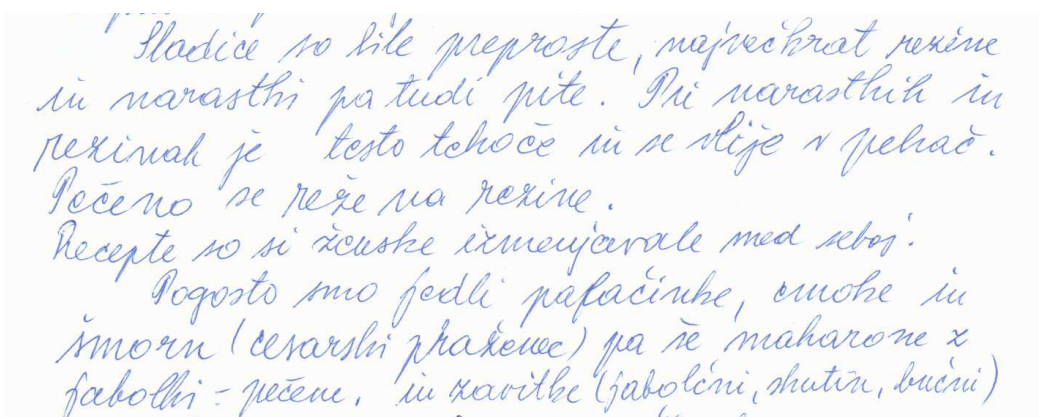 Sladice so bile preproste, največkrat rezine
in narastki pa tudi pite. Pri narastkih in
rezinah je testo tekoče in se vlije v pekač.
Pečeno se reže na rezine.
Recepte so si ženske izmenjavale med seboj.
Pogosto smo jedli palačinke, cmoke in
šmorn (cesarski praženec) pa še makarone z
jabolki - pečene, in zavitke (jabolčni, skutin, bučni)